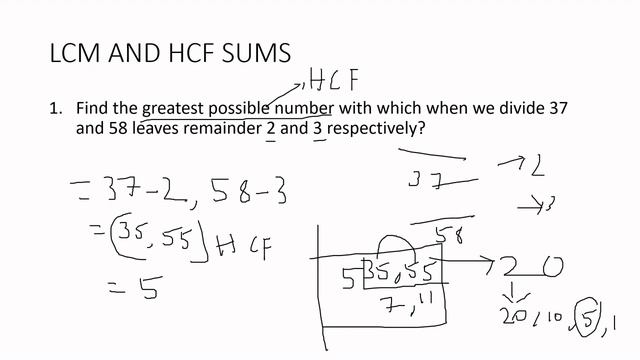 LCM AND HCF SUMS
HCF
1. Find the greatest possible number with which when we divide 37
and 58 leaves remainder 2 and 3 respectively?
= 37-2, 58-3
= (35, 55) HCF
= 5
37 → 2
→ 3
58
5 35, 55 → 20
7, 11
20, 10, 5, 1